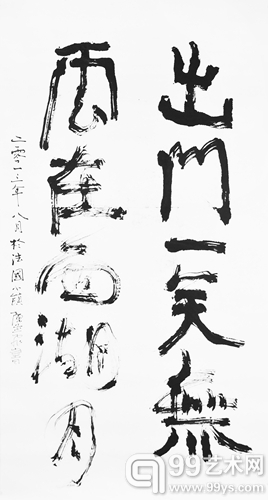 出门一笑無
雲在西湖月
二零一三年八月於法國小鎮
99艺术网
www.99ys.com